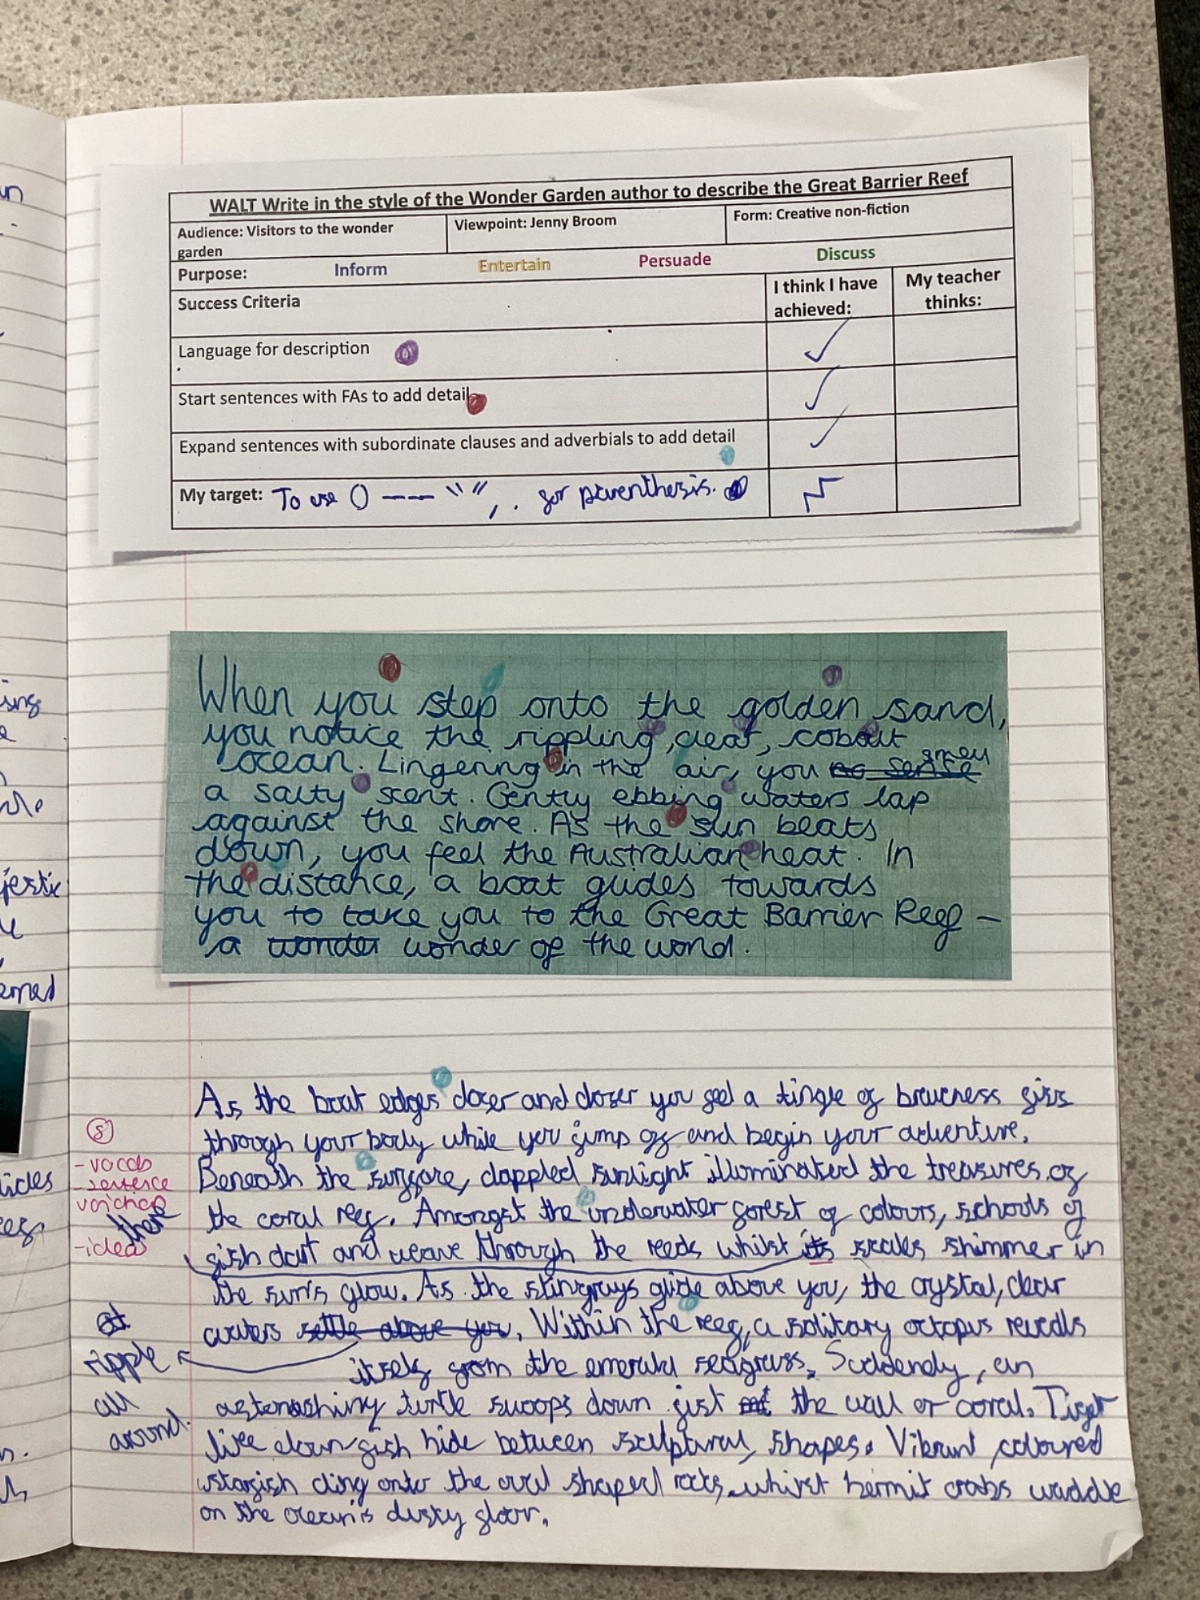 WALT Write in the style of the Wonder Garden author to describe the Great Barrier Reef
Audience: Visitors to the wonder garden
Viewpoint: Jenny Broom
Form: Creative non-fiction
Purpose: Inform Entertain Persuade Discuss
Success Criteria
I think I have achieved:
My teacher thinks:
Language for description
Start sentences with FAs to add detail
Expand sentences with subordinate clauses and adverbials to add detail
My target: To use () — — " " , , for parenthesis.
When you step onto the golden sand,
you notice the rippling, clear, cobalt
ocean. Lingering in the air, you smell
a salty scent. Gently ebbing waters lap
against the shore. As the sun beats
down, you feel the Australian heat. In
the distance, a boat glides towards
you to take you to the Great Barrier Reef –
a wonder wonder of the world.
As the boat edges closer and closer you feel a tingle of braveness
through your body while you jump off and begin your adventure.
Beneath the surface, dappled sunlight illuminated the treasures of
the coral reef. Amongst the underwater forest of colours, schools of
fish dart and weave through the reeds whilst its scales shimmer in
the sun's glow. As the stingrays glide above you, the crystal, clear
waters settle above you. Within the reef, a solitary octopus reveals
itself from the emerald seagrass. Suddenly, an
astonashing turtle swoops down the wall of coral. Tiger
like clown fish hide between sculptural, shapes. Vibrant, coloured
starfish cling onto the shaped rocks, whilst hermit crabs waddle
on the ocean's dusty floor.
S
- vocab
- sentence
- ideas
there
ripple
all
around.